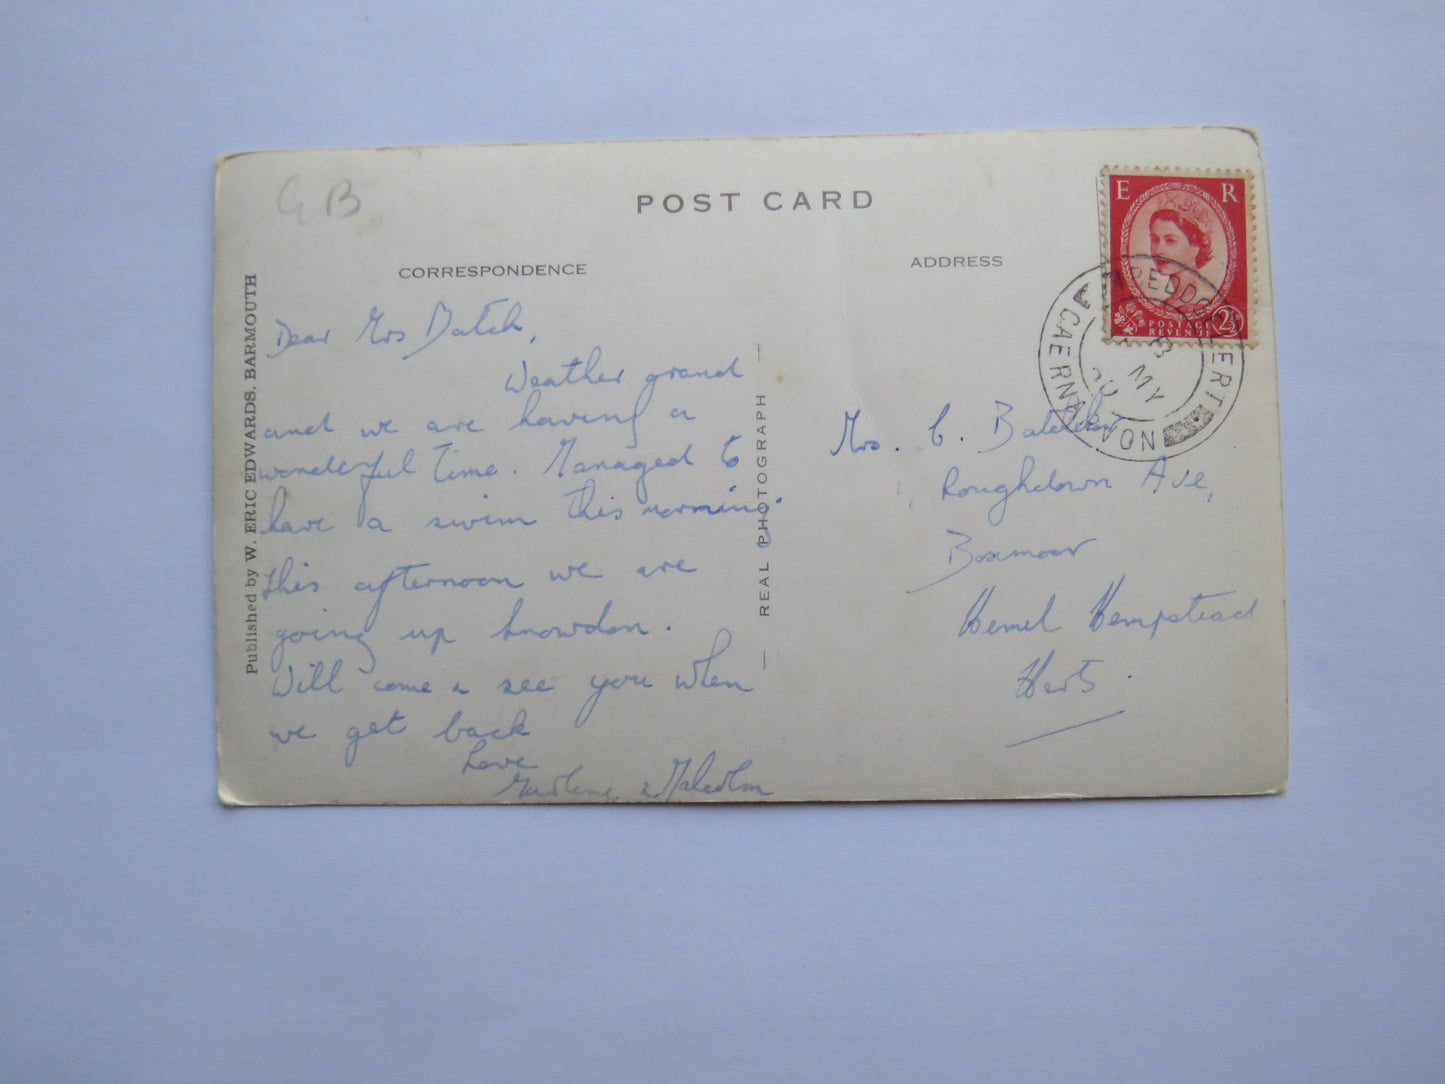 GB
POST CARD
CORRESPONDENCE
ADDRESS
Published by W. ERIC EDWARDS, BARMOUTH
REAL PHOTOGRAPH
E R
POSTAGE
REVENUE
2½
CAERNARVON
MY
Dear Mrs Batch,
Weather grand
and we are having a
wonderful time. Managed to
have a swim this morning.
This afternoon we are
going up Snowdon.
Will come & see you when
we get back
Love
Marlene & Malcolm
Mrs. C. Batch
Roughdown Ave,
Boxmoor
Hemel Hempstead
Herts.